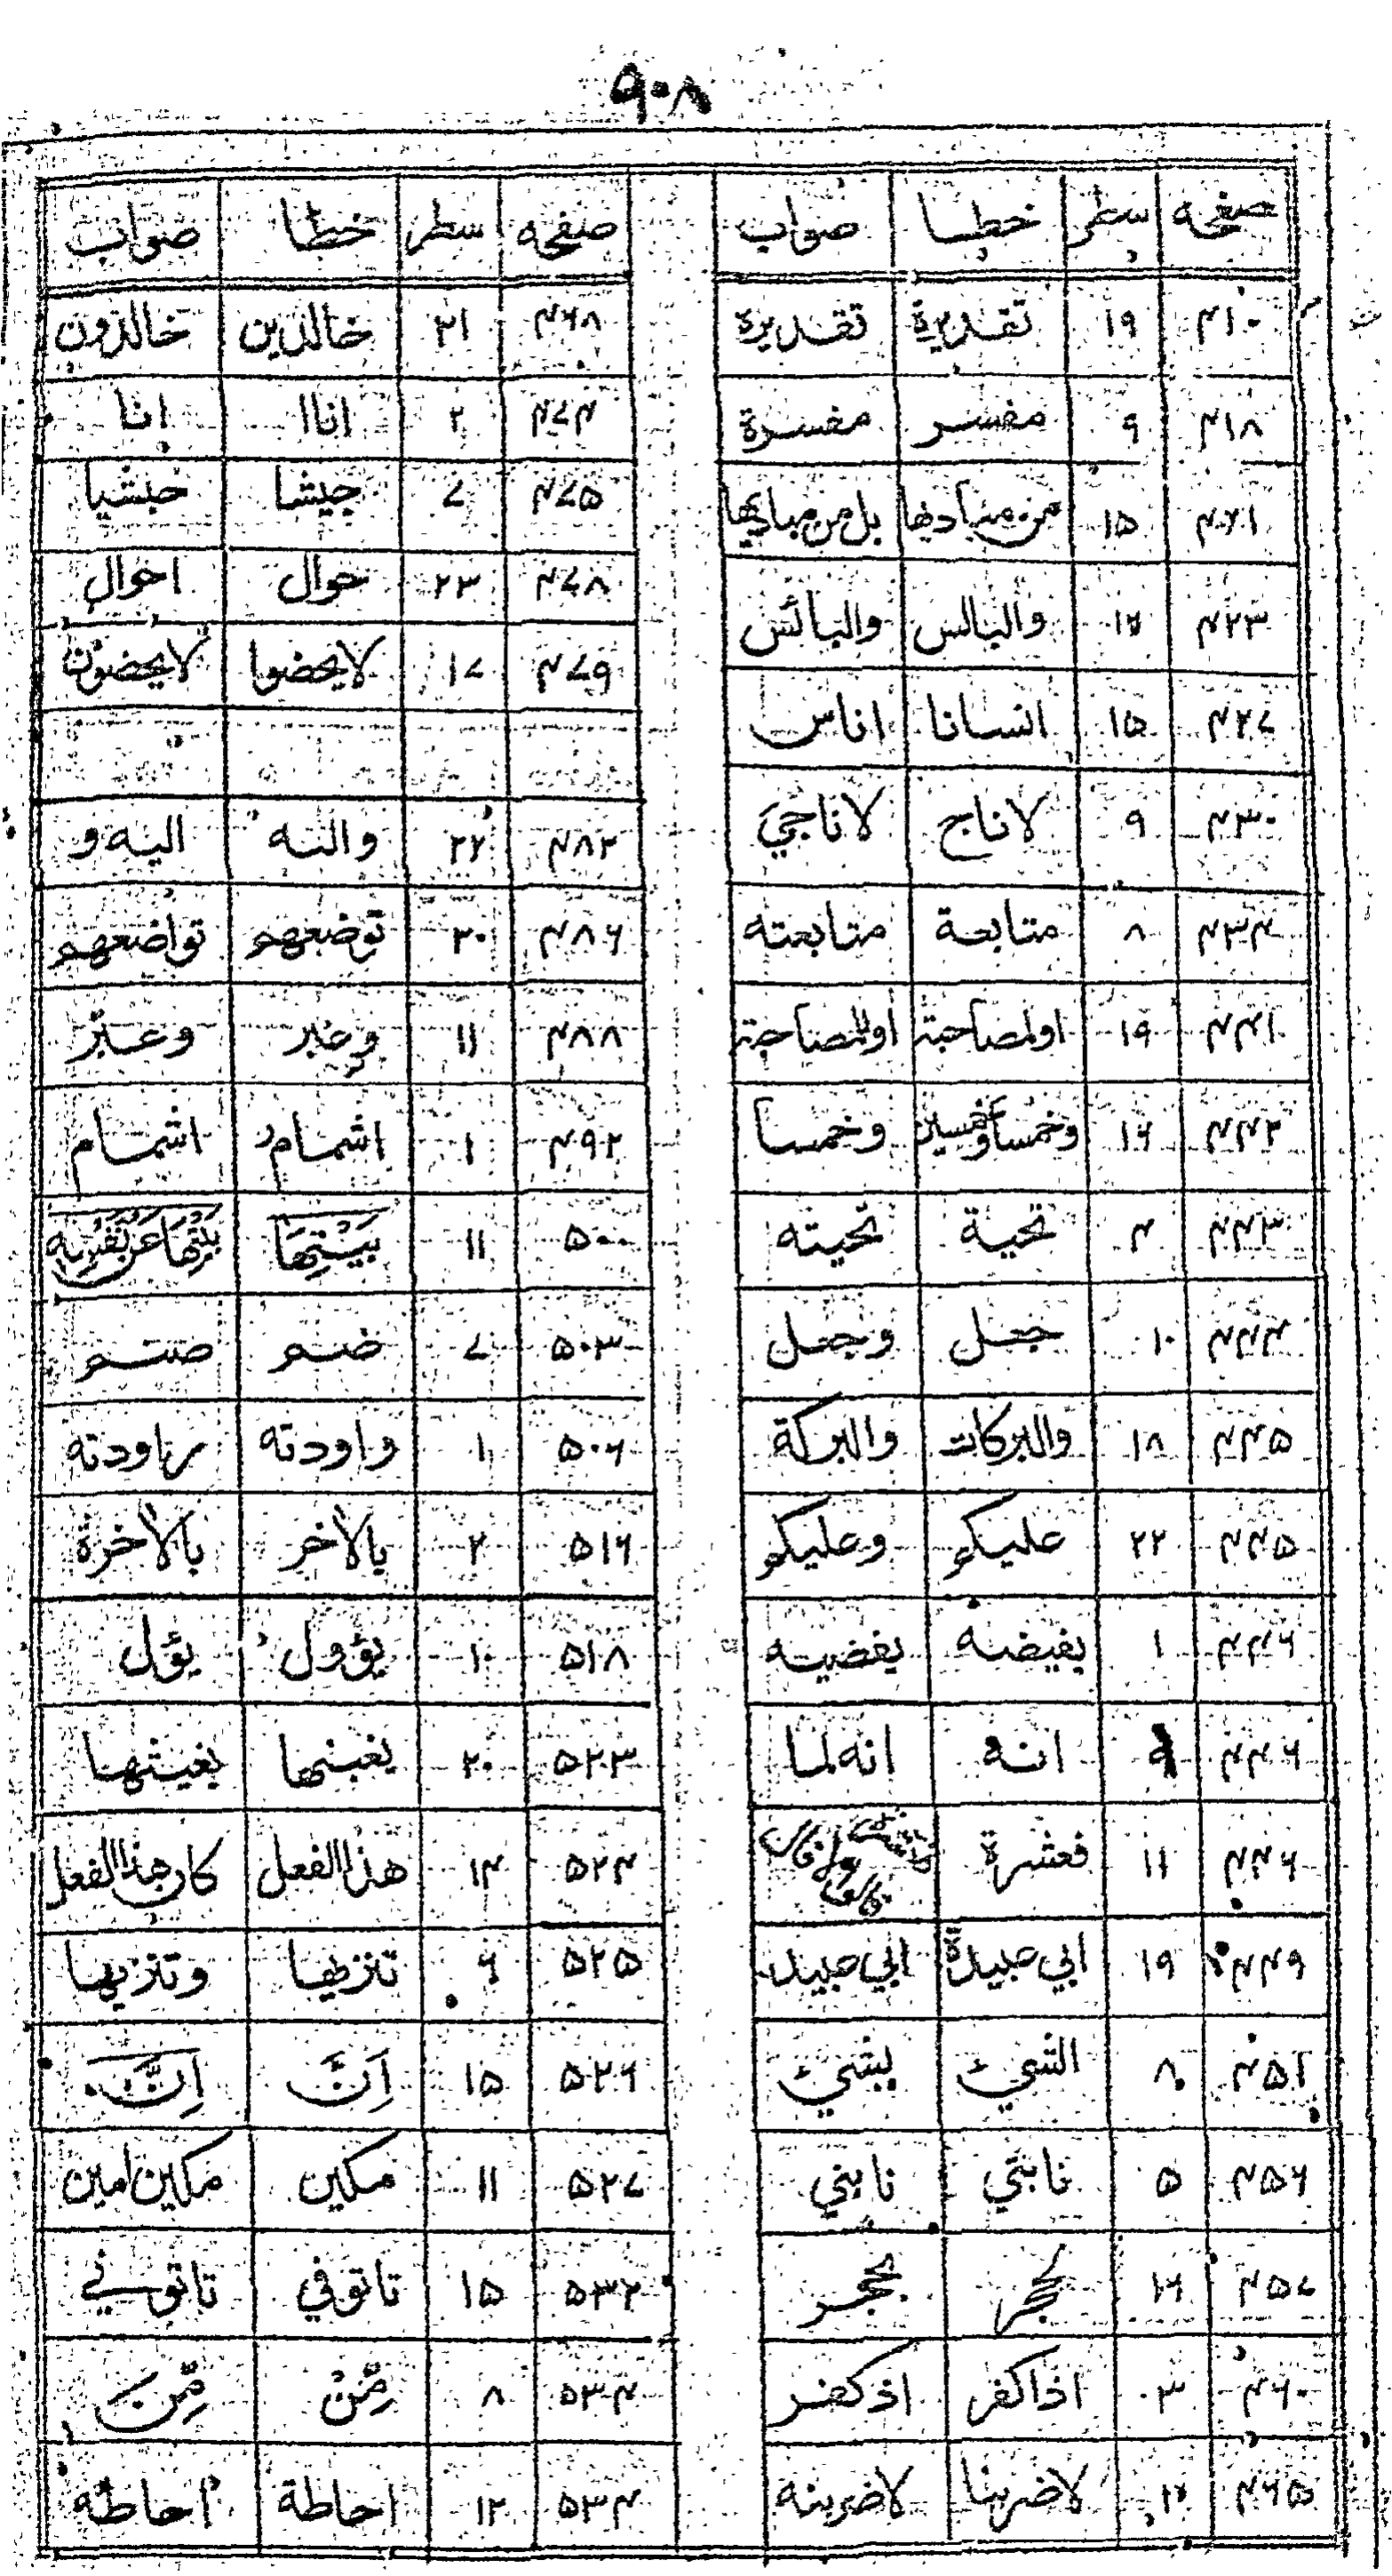 ۹۰۸
صفحه سطر خطا صواب
۴۱۰ ۱۹ تقديرية تقديره
۴۱۸ ۹ مفسر مفسرة
۴۲۱ ۱۵ من مباديها بل من مباديها
۴۲۳ والبالس والبائس
۴۲۷ ۱۵ انسانا اناس
۴۳۰ ۹ لاناج لاناجي
۴۳۴ ۸ متابعة متابعته
۴۴۱ ۱۹ اولمصاحبة اوللمصاحبة
۴۴۲ ۱۶ وخمساوخمسين وخمسا
۴۴۳ ۴ تحية تحيته
۴۴۴ ۱۰ جعل وجعل
۴۴۵ ۱۸ والبركات والبركة
۴۴۵ ۲۲ عليكم وعليكم
۴۴۶ ۱ يفيضه يفضيه
۴۴۶ ۹ انه انه لما
۴۴۶ ۱۱ فعشرة
۴۴۹ ۱۹ ابي حبيدة ابي حبيد
۴۵۱ ۸ الشيئ بشيئ
۴۵۶ ۵ نابثي نابني
۴۵۷ ۱۶ لحجر بحجر
۴۶۰ ۳ اذاكفر اذكفر
۴۶۵ لاضربنا لاضربنه
صفحه سطر خطا صواب
۴۶۸ ۲۱ خالدين خالدون
۴۷۴ ۲ اناا انا
۴۷۵ ۷ جيشا حبشيا
۴۷۸ ۲۳ حوال احوال
۴۷۹ ۱۷ لايحضوا لايحضون
۴۸۲ ۲۲ والنه اليه و
۴۸۶ ۲۰ توضعهم تواضعهم
۴۸۸ ۱۱ وعبر وعبّر
۴۹۲ ۱ اشمام اشمام
۵۰۰ ۱۱ بيتها
۵۰۳ ۷ ضم صتم
۵۰۶ ۱ واودته راودته
۵۱۶ ۲ بالاخر بالاخرة
۵۱۸ ۱۰ يؤول يؤل
۵۲۳ ۲۰
۵۲۴ ۱۴ هذا الفعل كان هذا الفعل
۵۲۵ ۶ تنزيها وتنزيها
۵۲۶ ۱۵ اَنَّ اِنَّ
۵۲۷ ۱۱ مكين مكين امين
۵۳۲ ۱۵ تاتوفي تاتوني
۵۳۴ ۸ مِّنْ مِّنَ
۵۳۴ ۱۲ احاطة احاطه